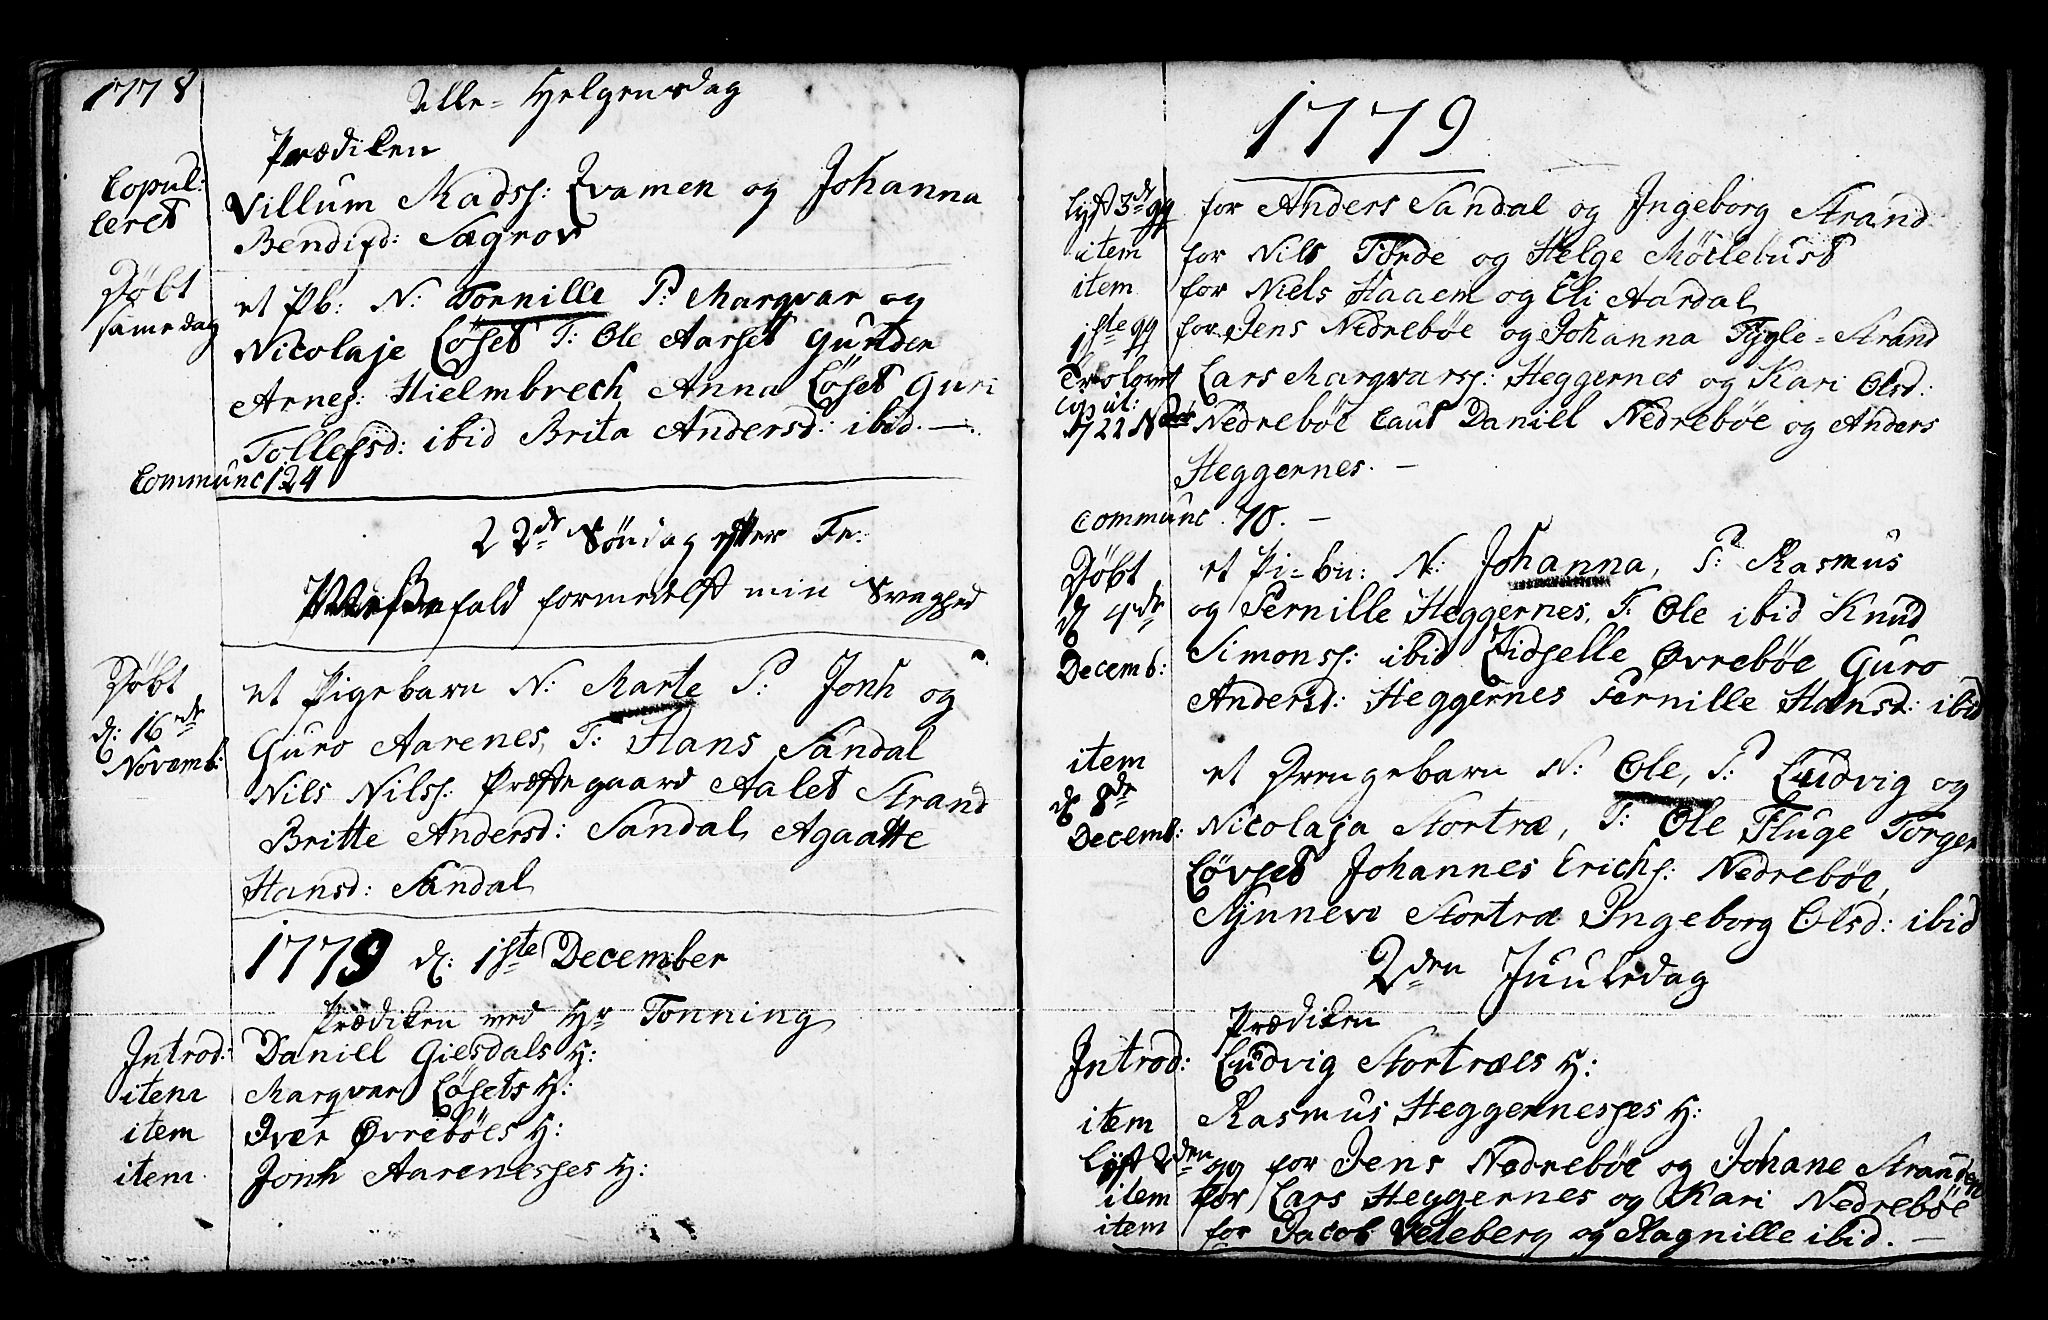 1778
Alle-Helgensdag
Prædiken
Copul:
leret
Villum Madss: Qvamen og Johanna
Bendixd: Sægrov
Døbt
same dag
et Pb: N: Tornille P: Marqvar og
Nicolaje Løset T: Ole Aarset Gunder
Arnes: Hielmbrech Anna Løset Guri
Tollefsd: ibid Brita Andersd: ibid. —
Communc 124
22de Søndag efter Tr:
Messefald formedelst min Svaghed
Døbt
d: 16de
Novemb:
et Pigebarn N: Marte P: Jonh og
Guro Aarenes, T: Hans Sandal
Nils Nilss: Præstegaard Aalet Strand
Britte Andersd: Sandal Agaatte
Hansd: Sandal
1779 d: 1ste December
Prædiken med Hr Tonning
Introd: Daniel Giesdals H:
item Marqvar Løsets H:
item Iver Øvrebøes H:
item Jonh Aarenesses H:
1779
Lyst 3de gg for Anders Sandal og Ingeborg Strand
item for Nils Førde og Helge Møclebust
item for Niels Haaem og Eli Aardal
1ste gg for Jens Nedrebøe og Johanna Fygle-Strand
Trolovet Lars Marqvarss: Heggernes og Kari Olsd:
Copul:
d 22 Nedrebøe Caut Daniel Nedrebøe og Anders
Heggernes. —
Communc. 70. —
Døbt
d 4de
Decemb:
et Pi-bn: N: Johanna, P: Rasmus
og Pernille Heggernes, T: Ole ibid Knud
Simonss: ibid Zidselle Øvrebøe Guro
Andersd: Heggernes Pernille Hansd: ibid
item
d 8de
Decemb:
et Drengebarn N: Ole, P: Ludvig og
Nicolaja Stortræ, T: Ole Fluge Torger
Løvset Johannes Erichs: Nedrebøe,
Synneve Stortræ Ingeborg Olsd: ibid
2den Juuledag
Prædiken
Introd: Ludvig Stortræes H:
item Rasmus Heggernesses H:
Lyst 2den gg for Jens Nedrebøe og Johane Stranden
item for Lars Heggernes og Kari Nedrebøe
item for Jacob Veleberg og Ragnille ibid. —